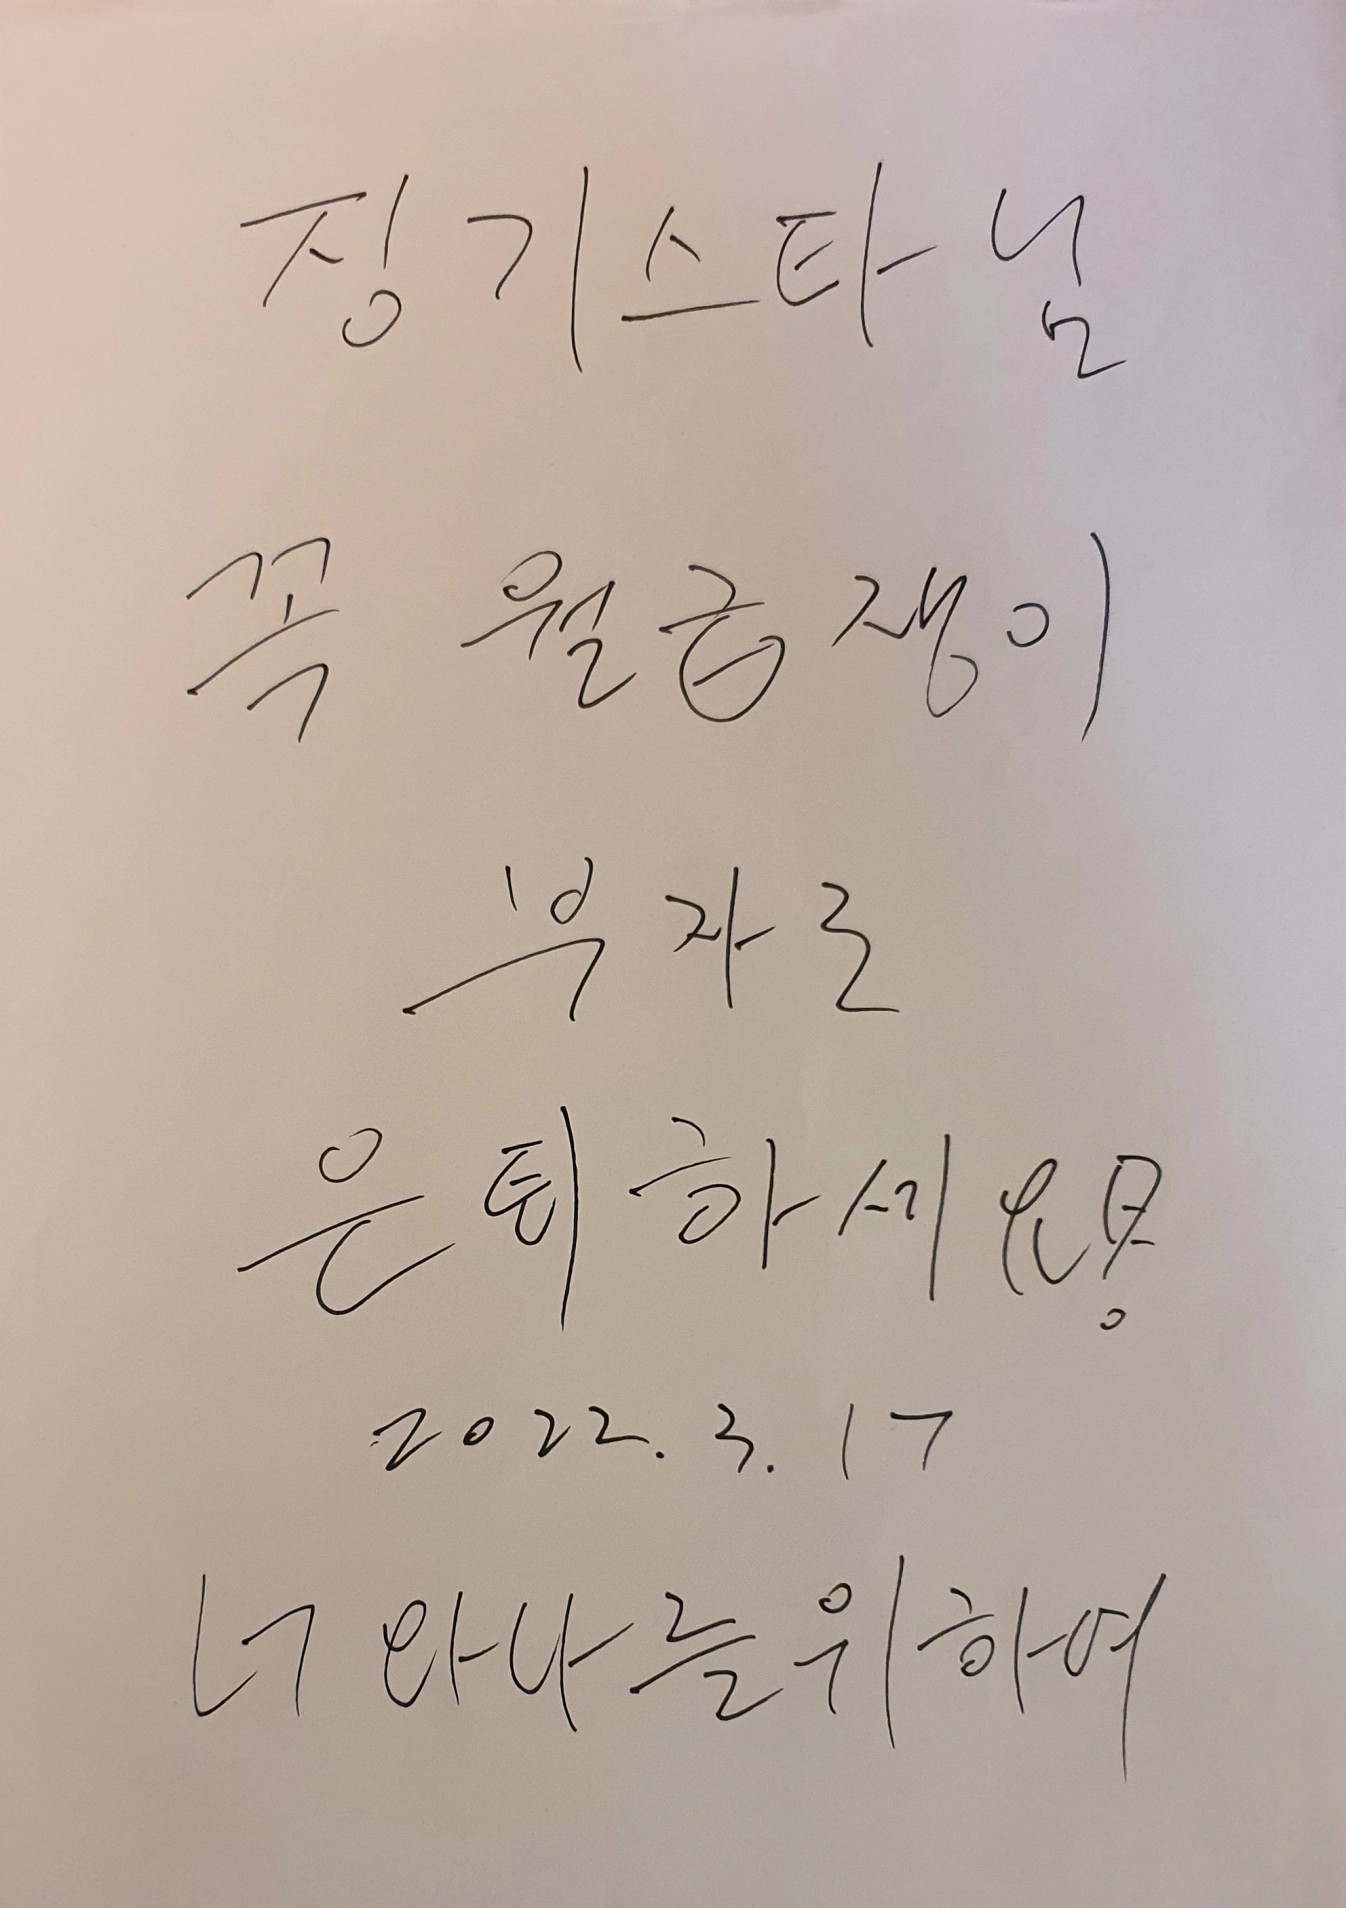 징기스타님
꼭 월급쟁이
부자로
은퇴하세요!
2022. 3. 17
너와나를위하여